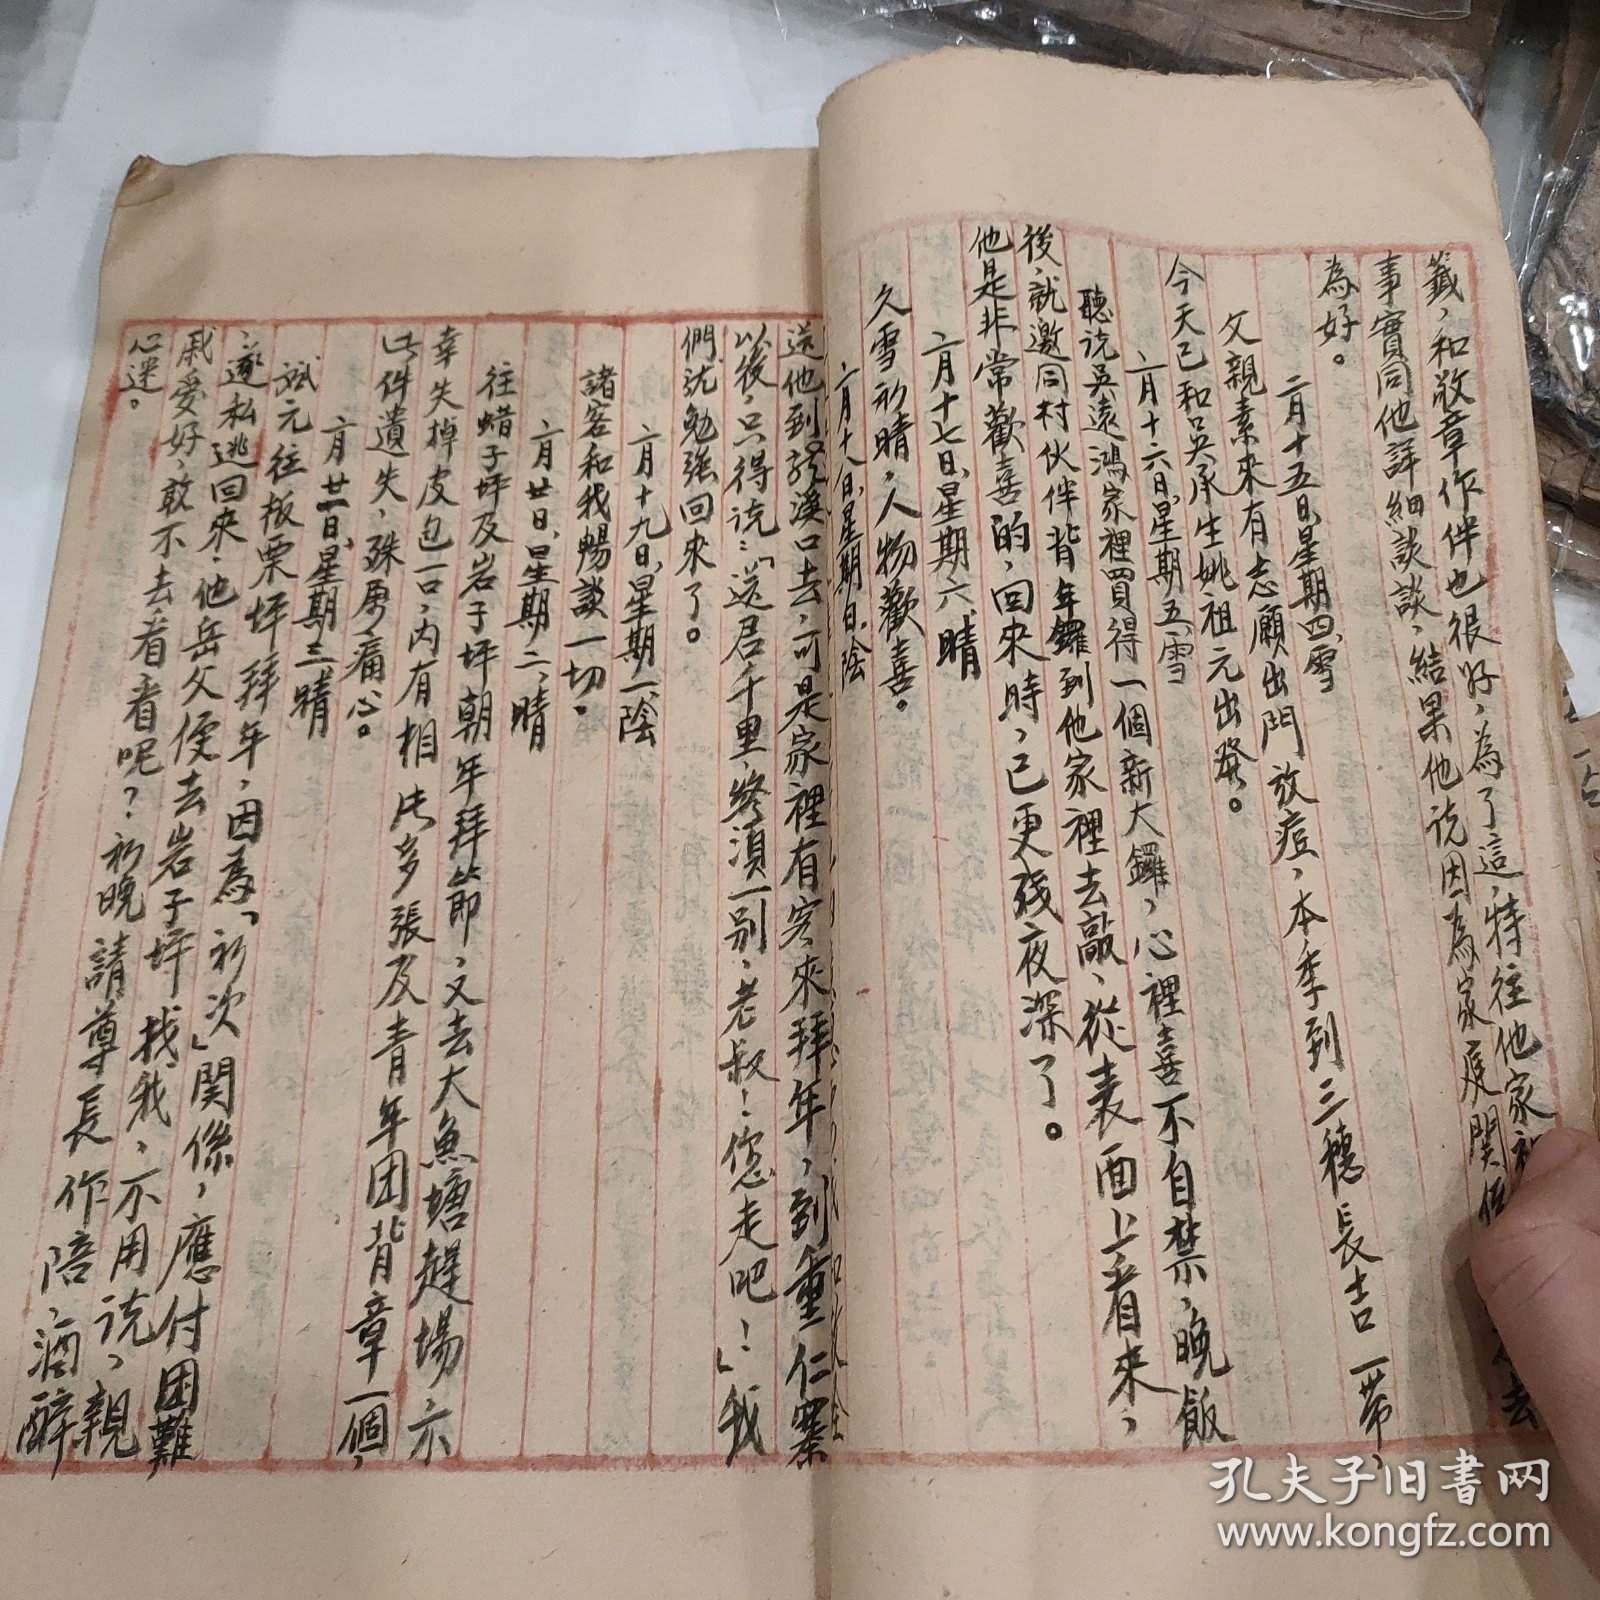 籤，和敬章作伴也很好，為了這，特往他家裡
事實同他詳細談談，結果他说因為家庭関係
為好。
二月十五日，星期四，雪
父親素來有志願出門放痘，本季到三穗長吉一带，
今天已和吳承生姚祖元出發。
二月十六日，星期五，雪
聽说吳遠鴻家裡買得一個新大鑼，心裡喜不自禁，晚飯
後，就邀同村伙伴背年鑼到他家裡去敲，從表面上看來，
他是非常歡喜的，回來時，已更残夜深了。
二月十七日，星期六，晴
久雪初晴，人物歡喜。
二月十八日，星期日，陰
送他到溪口去，可是家裡有客來拜年，到重仁寨
以後，只得说：「送君千里，終須一别，老叔！您走吧！」我
們就勉强回來了。
二月十九日，星期一，陰
諸客和我暢談一切。
二月廿日，星期二，晴
往蜡子坪及岩子坪朝年拜節，又去大魚塘趕場，不
幸失掉皮包一口，内有相片多張及青年团背章一個，
此件遺失，殊属痛心。
二月廿一日，星期三，晴
斌元往板栗坪拜年，因為「初次」関係，應付困難
，遂私逃回來，他岳父便去岩子坪找我，不用说，親
戚爱好，敢不去看看呢？初晚請尊長作陪，酒醉
心迷。
孔夫子旧书网
www.kongfz.com